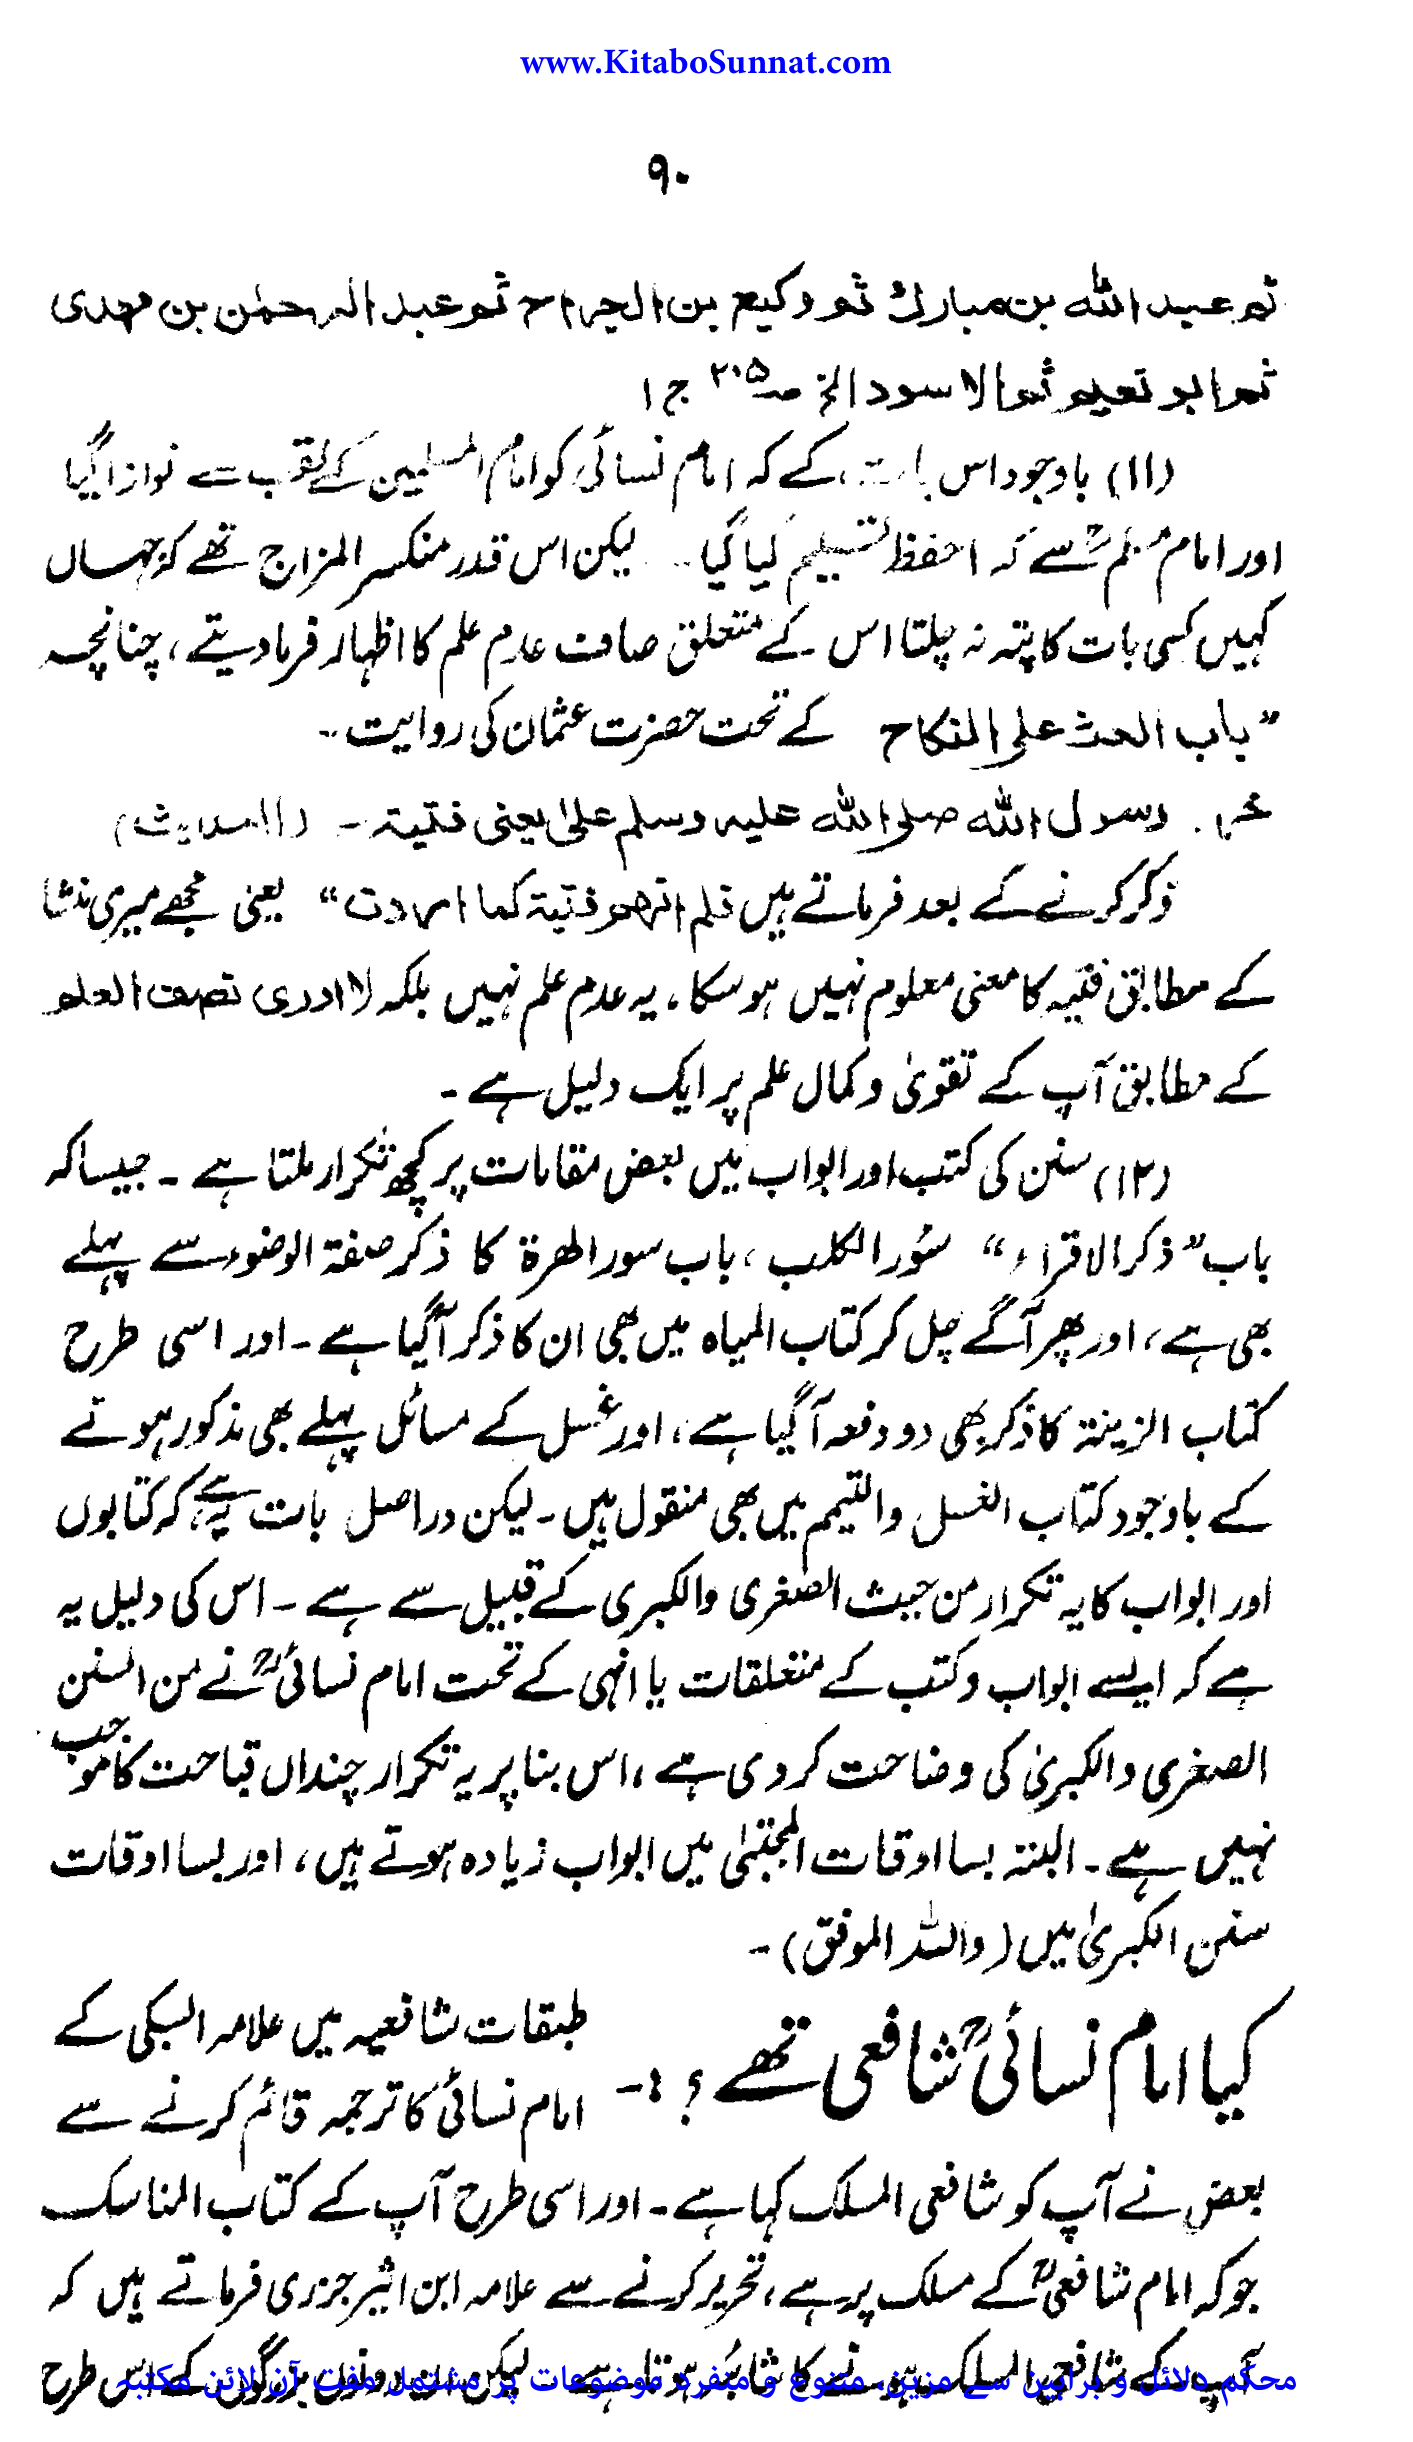 www.KitaboSunnat.com
۹۰
ثم عبد الله بن مبارك ثم وكيع بن الجراح ثم عبد الرحمٰن بن مهدی
ثم ابو نعیم ثم الاسود الخ صـ۲۰۵ ج ا
(۱۱) باوجود اس بات کے کہ امام نسائی کو امام المسلمین کے لقب سے نوازا گیا
اور امام مسلمؒ سے کہ احفظ تسلیم کیا گیا۔ لیکن اس قدر منکسر المزاج تھے کہ جہاں
کہیں کسی بات کا پتہ نہ چلتا اس کے متعلق صاف عدم علم کا اظہار فرما دیتے، چنانچہ
”باب الحث علی النکاح کے تحت حضرت عثمان کی روایت۔
خرج رسول الله صلی الله علیه وسلم علیٰ یعنی فتیة۔ (الحدیث)
ذکر کرنے کے بعد فرماتے ہیں فلم افهم فتیة کما اردت“ یعنی مجھے میری منشا
کے مطابق فتیہ کا معنی معلوم نہیں ہو سکا، یہ عدم علم نہیں بلکہ لا ادری نصف العلم
کے مطابق آپ کے تقویٰ و کمال علم پر ایک دلیل ہے۔
(۱۲) سنن کی کتب اور ابواب میں بعض مقامات پر کچھ تکرار ملتا ہے۔ جیسا کہ
باب ”ذکر الاقراء“ سؤر الکلب، باب سور الھرۃ کا ذکر صفۃ الوضوء سے پہلے
بھی ہے، اور پھر آگے چل کر کتاب المیاہ میں بھی ان کا ذکر آگیا ہے۔ اور اسی طرح
کتاب الزینۃ کا ذکر بھی دو دفعہ آگیا ہے، اور غسل کے مسائل پہلے بھی مذکور ہونے
کے باوجود کتاب الغسل والتیمم میں بھی منقول ہیں۔ لیکن دراصل بات یہ ہے کہ کتابوں
اور ابواب کا یہ تکرار من حیث الصغری والکبری کے قبیل سے ہے۔ اس کی دلیل یہ
ہے کہ ایسے ابواب و کتب کے متعلقات یا انہی کے تحت امام نسائیؒ نے من السنن
الصغری والکبریٰ کی وضاحت کر دی ہے، اس بنا پر یہ تکرار چنداں قباحت کا موجب
نہیں ہے۔ البتہ بسا اوقات المجتبٰی میں ابواب زیادہ ہوتے ہیں، اور بسا اوقات
سنن الکبریٰ میں (واللہ الموفق)۔
کیا امام نسائیؒ شافعی تھے؟ :-
طبقات شافعیہ میں علامہ السبکی کے
امام نسائی کا ترجمہ قائم کرنے سے
بعض نے آپ کو شافعی المسلک کہا ہے۔ اور اسی طرح آپ کے کتاب المناسک
جو کہ امام شافعیؒ کے مسلک پر ہے، تحریر کرنے سے علامہ ابن اثیر جزری فرماتے ہیں کہ
آپ کے شافعی المسلک ہونے کا شائبہ ہوتا ہے۔ لیکن ان دونوں بزرگوں کے اس طرح
محکم دلائل و براہین سے مزین، متنوع و منفرد موضوعات پر مشتمل مفت آن لائن مکتبہ